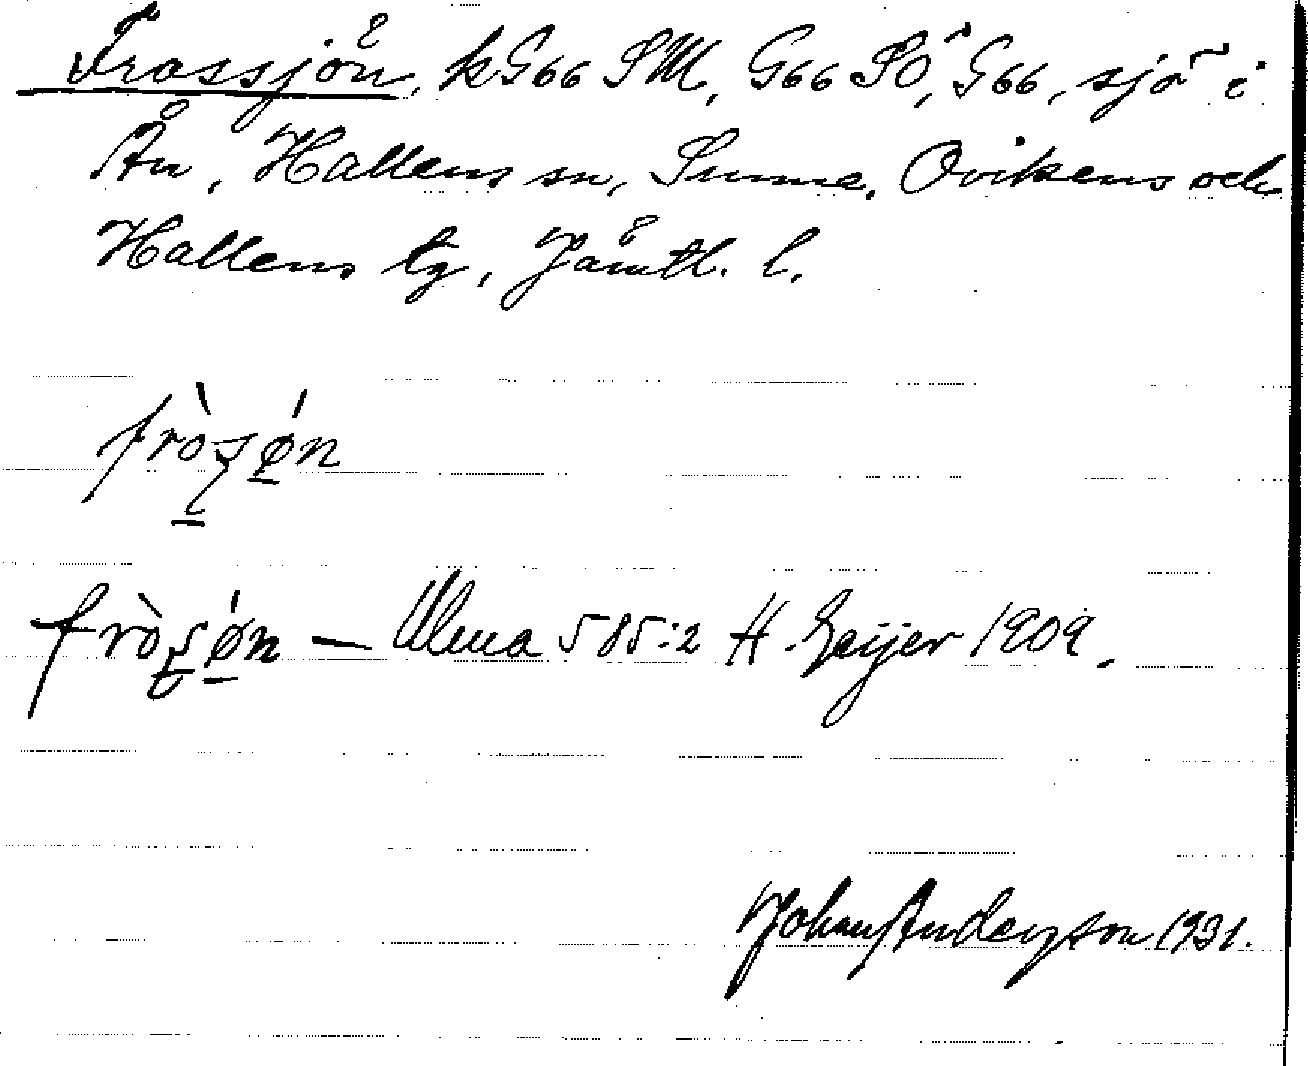 Frossjön, kG66 SM, G66 SÖ, G66, sjö i
Ån, Hallens sn, Sunne, Ovikens och
Hallens tg, Jämtl. l.
fròsø̱n
fròsø̱n — Ulma 585:2 H. Geijer 1909.
Johan Anderson 1931.